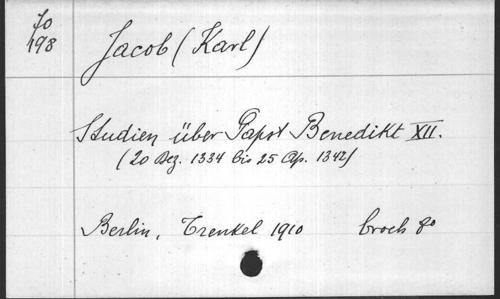 Jo
198
Jacob (Karl)
Studien über Papst Benedikt XII.
(20 Dez. 1334 bis 25 Ap. 1342)
Berlin, Trenkel 1910 broch 8o